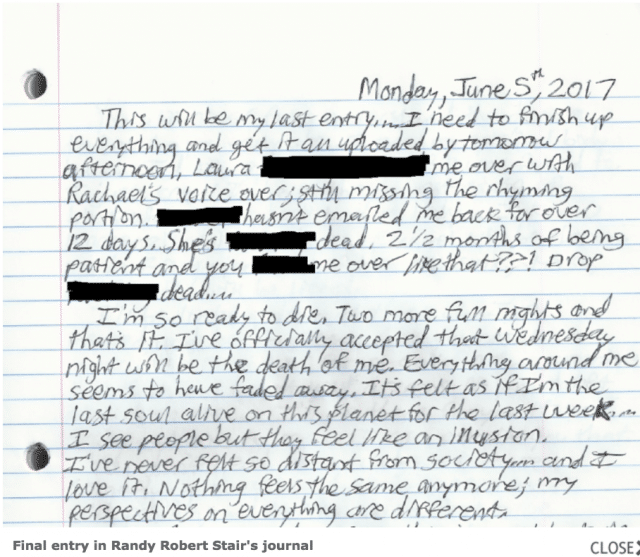 Monday, June 5th, 2017
This will be my last entry.... I need to finish up
everything and get it all uploaded by tomorrow
afternoon, Laura me over with
Rachael's voice over; still missing the rhyming
portion. hasn't emailed me back for over
12 days. She's dead. 2 1/2 months of being
patient and you me over like that??! Drop
dead....
I'm so ready to die. Two more full nights and
that's it. I've officially accepted that Wednesday
night will be the death of me. Everything around me
seems to have faded away. It's felt as if I'm the
last soul alive on this planet for the last week....
I see people but they feel like an illusion.
I've never felt so distant from society.... and I
love it. Nothing feels the same anymore; my
perspectives on everything are different.
Final entry in Randy Robert Stair's journal
CLOSE